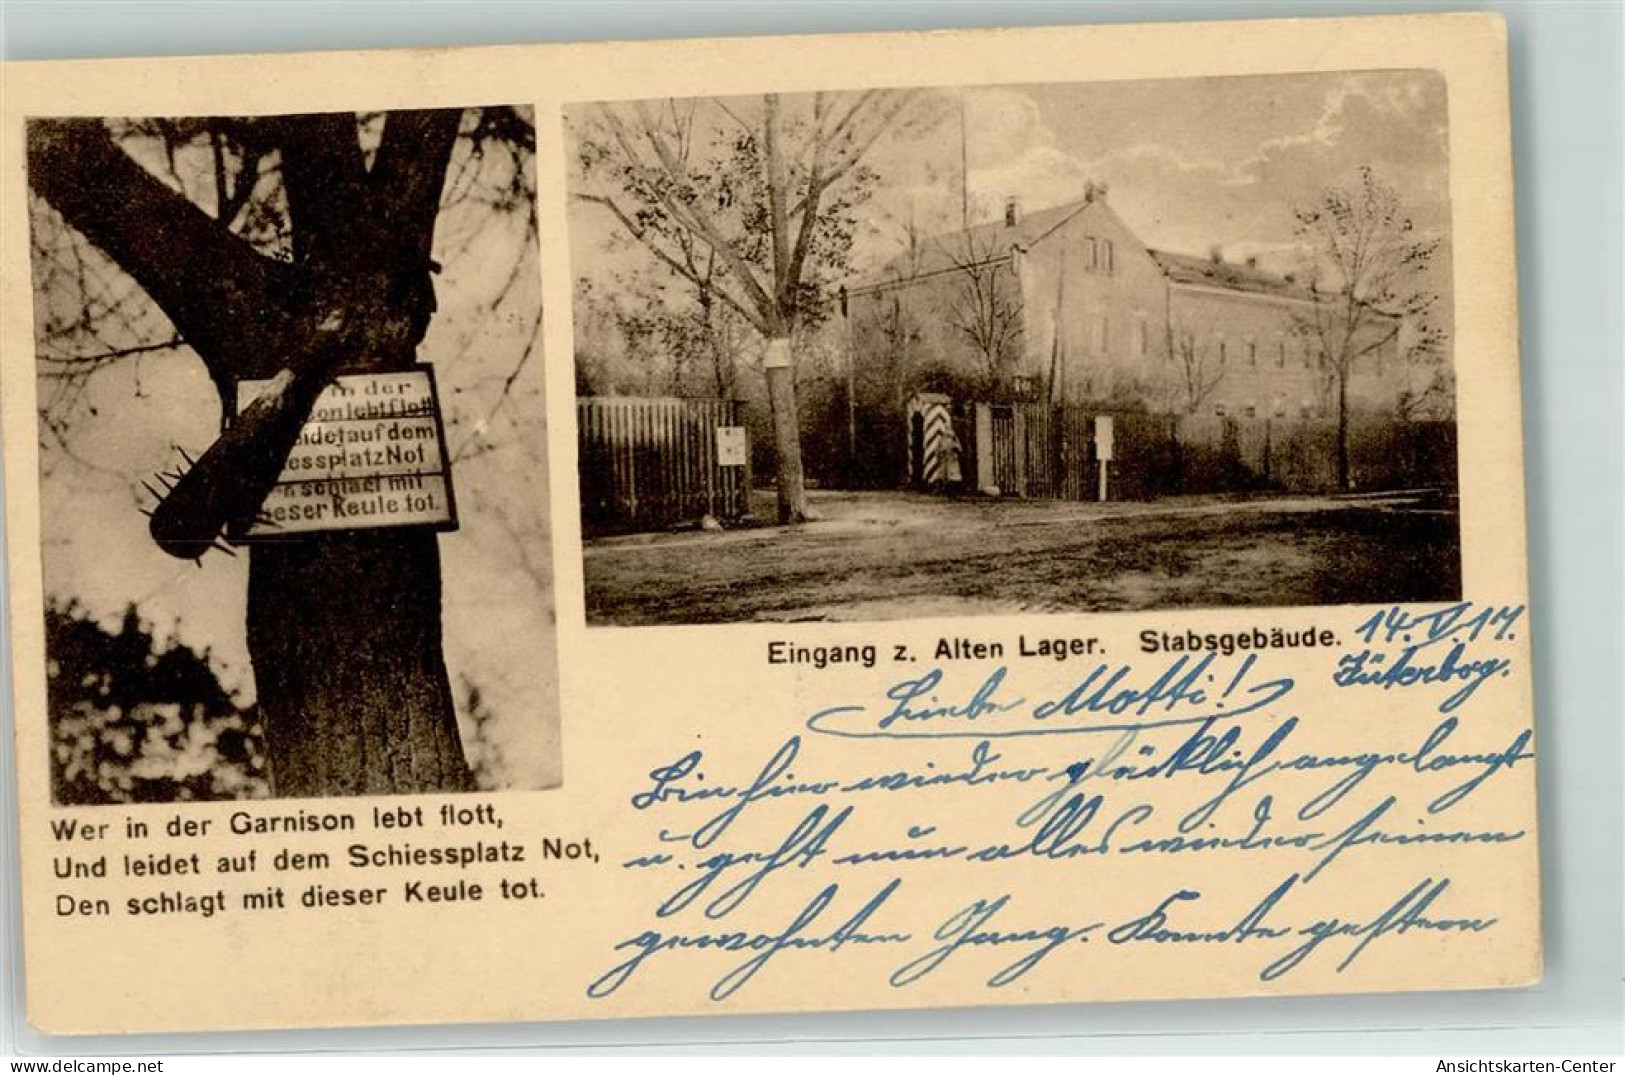 in der
son lebt flott
eidet auf dem
essplatz Not
n schlaet mit
ieser Keule tot.
Wer in der Garnison lebt flott,
Und leidet auf dem Schiessplatz Not,
Den schlagt mit dieser Keule tot.
Eingang z. Alten Lager. Stabsgebäude.
14.V.17.
Jüterbog.
Liebe Motti!
Bin hier wieder glücklich angelangt
u. geht nun alles wieder seinen
gewohnten Gang. Konnte gestern
Ansichtskarten-Center